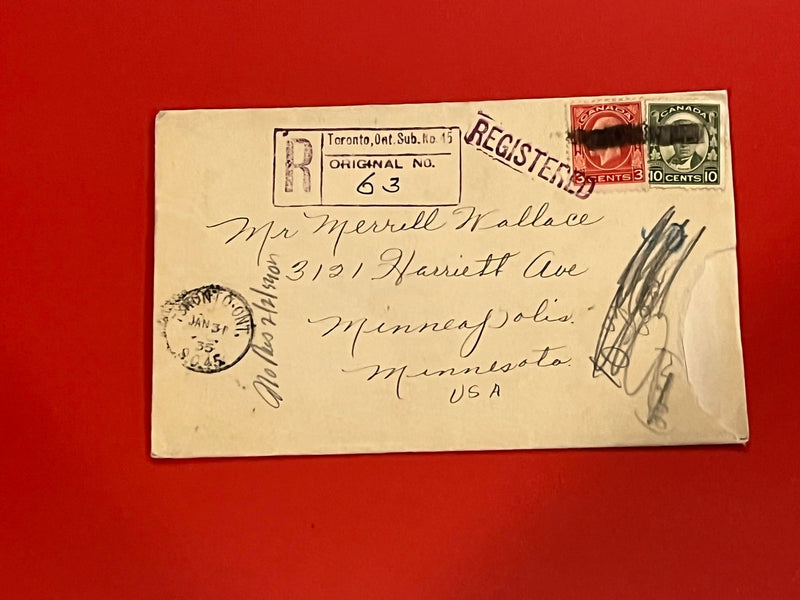 R
Toronto, Ont. Sub. No. 45
ORIGINAL NO.
63
REGISTERED
CANADA
3 CENTS 3
CANADA
10 CENTS 10
Mr Merrill Wallace
3121 Harriett Ave
Minneapolis.
Minnesota.
USA
TORONTO·ONT.
JAN 31
35
S.O.45
No Res